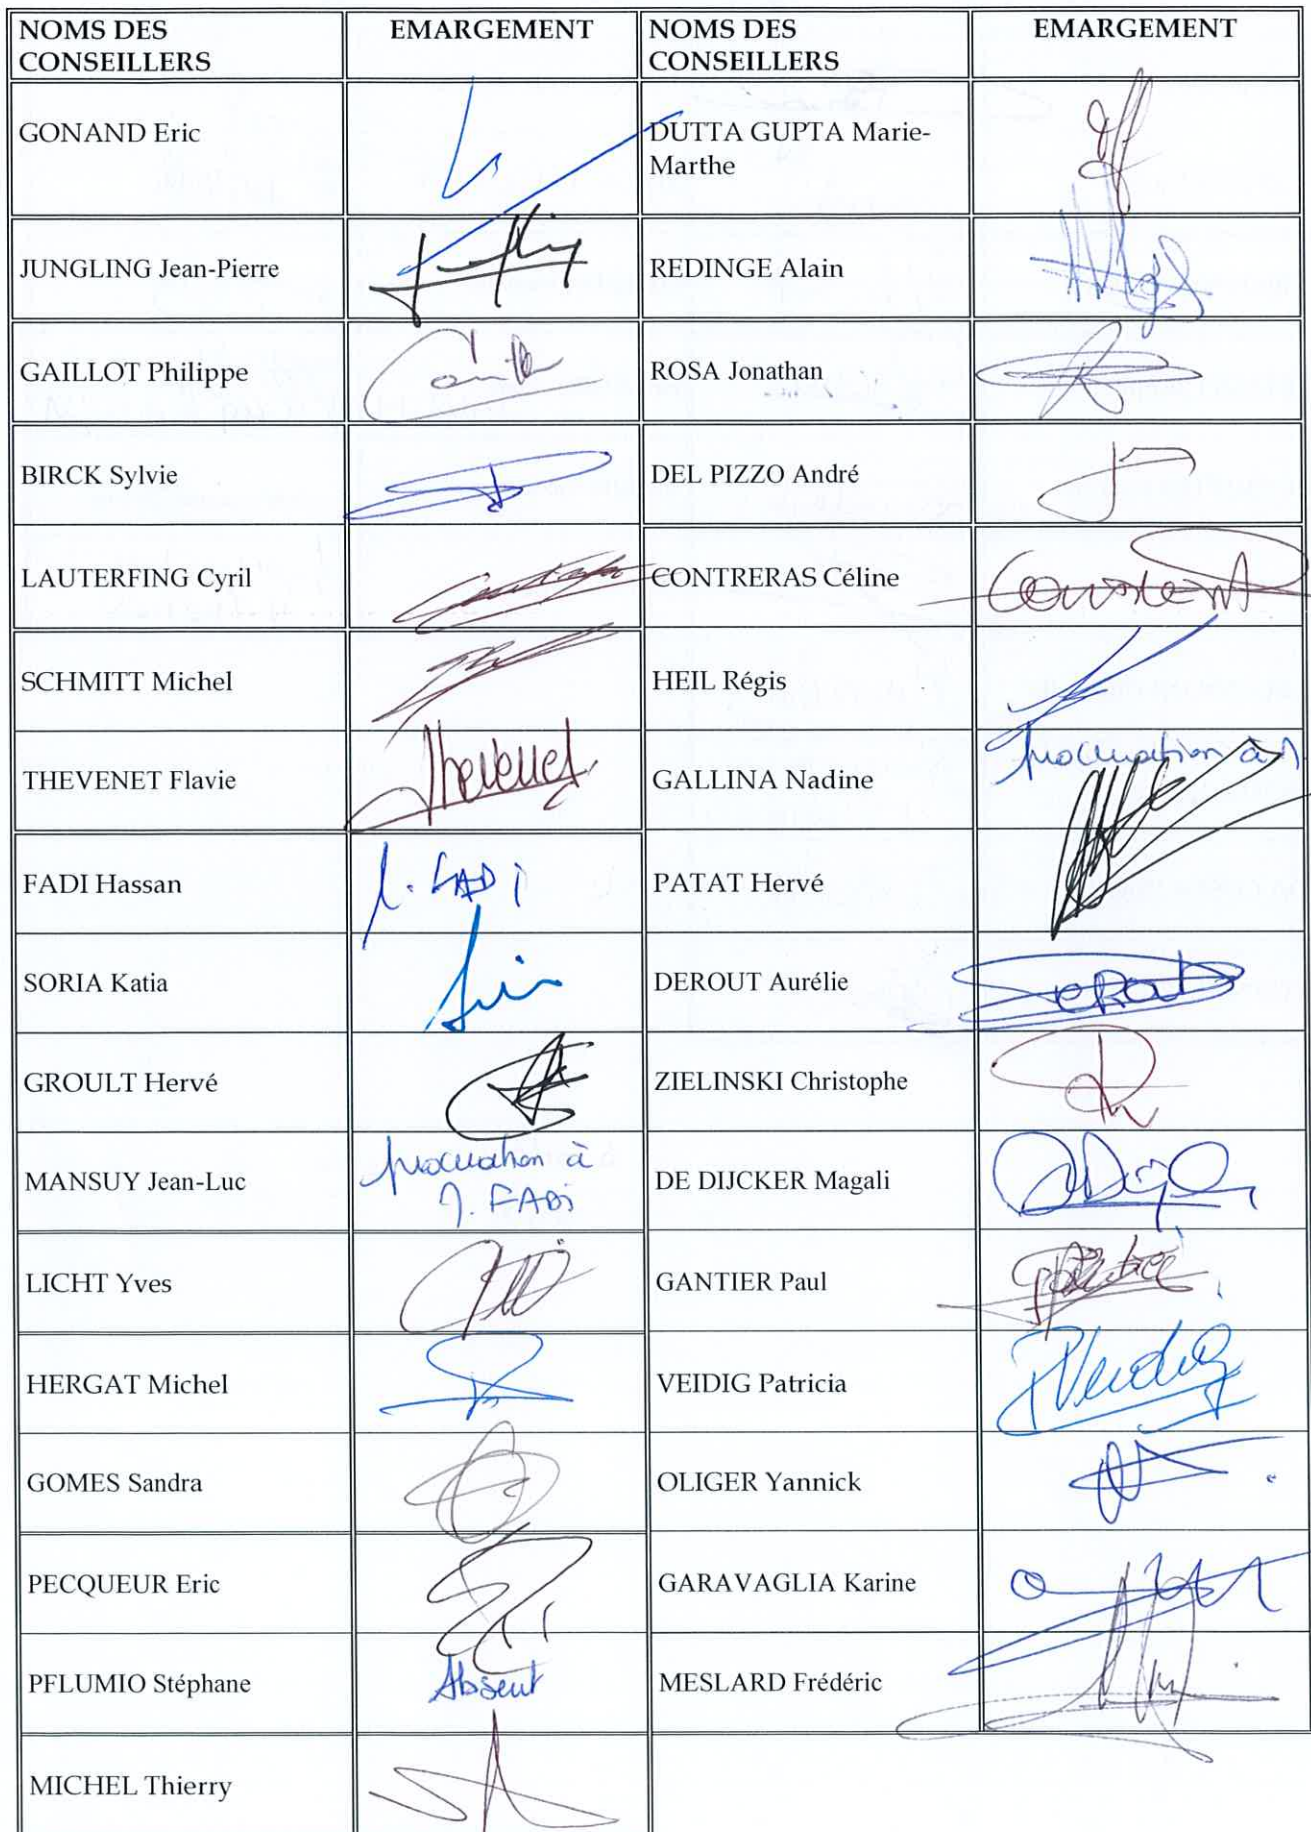 NOMS DES
CONSEILLERS
EMARGEMENT
NOMS DES
CONSEILLERS
EMARGEMENT
GONAND Eric
DUTTA GUPTA Marie-
Marthe
JUNGLING Jean-Pierre
REDINGE Alain
GAILLOT Philippe
ROSA Jonathan
BIRCK Sylvie
DEL PIZZO André
LAUTERFING Cyril
CONTRERAS Céline
SCHMITT Michel
HEIL Régis
THEVENET Flavie
Thevenet
GALLINA Nadine
procuration à
FADI Hassan
FADI
PATAT Hervé
SORIA Katia
DEROUT Aurélie
GROULT Hervé
ZIELINSKI Christophe
MANSUY Jean-Luc
procuration à
FADI
DE DIJCKER Magali
LICHT Yves
GANTIER Paul
HERGAT Michel
VEIDIG Patricia
PVeidig
GOMES Sandra
OLIGER Yannick
PECQUEUR Eric
GARAVAGLIA Karine
PFLUMIO Stéphane
Absent
MESLARD Frédéric
MICHEL Thierry